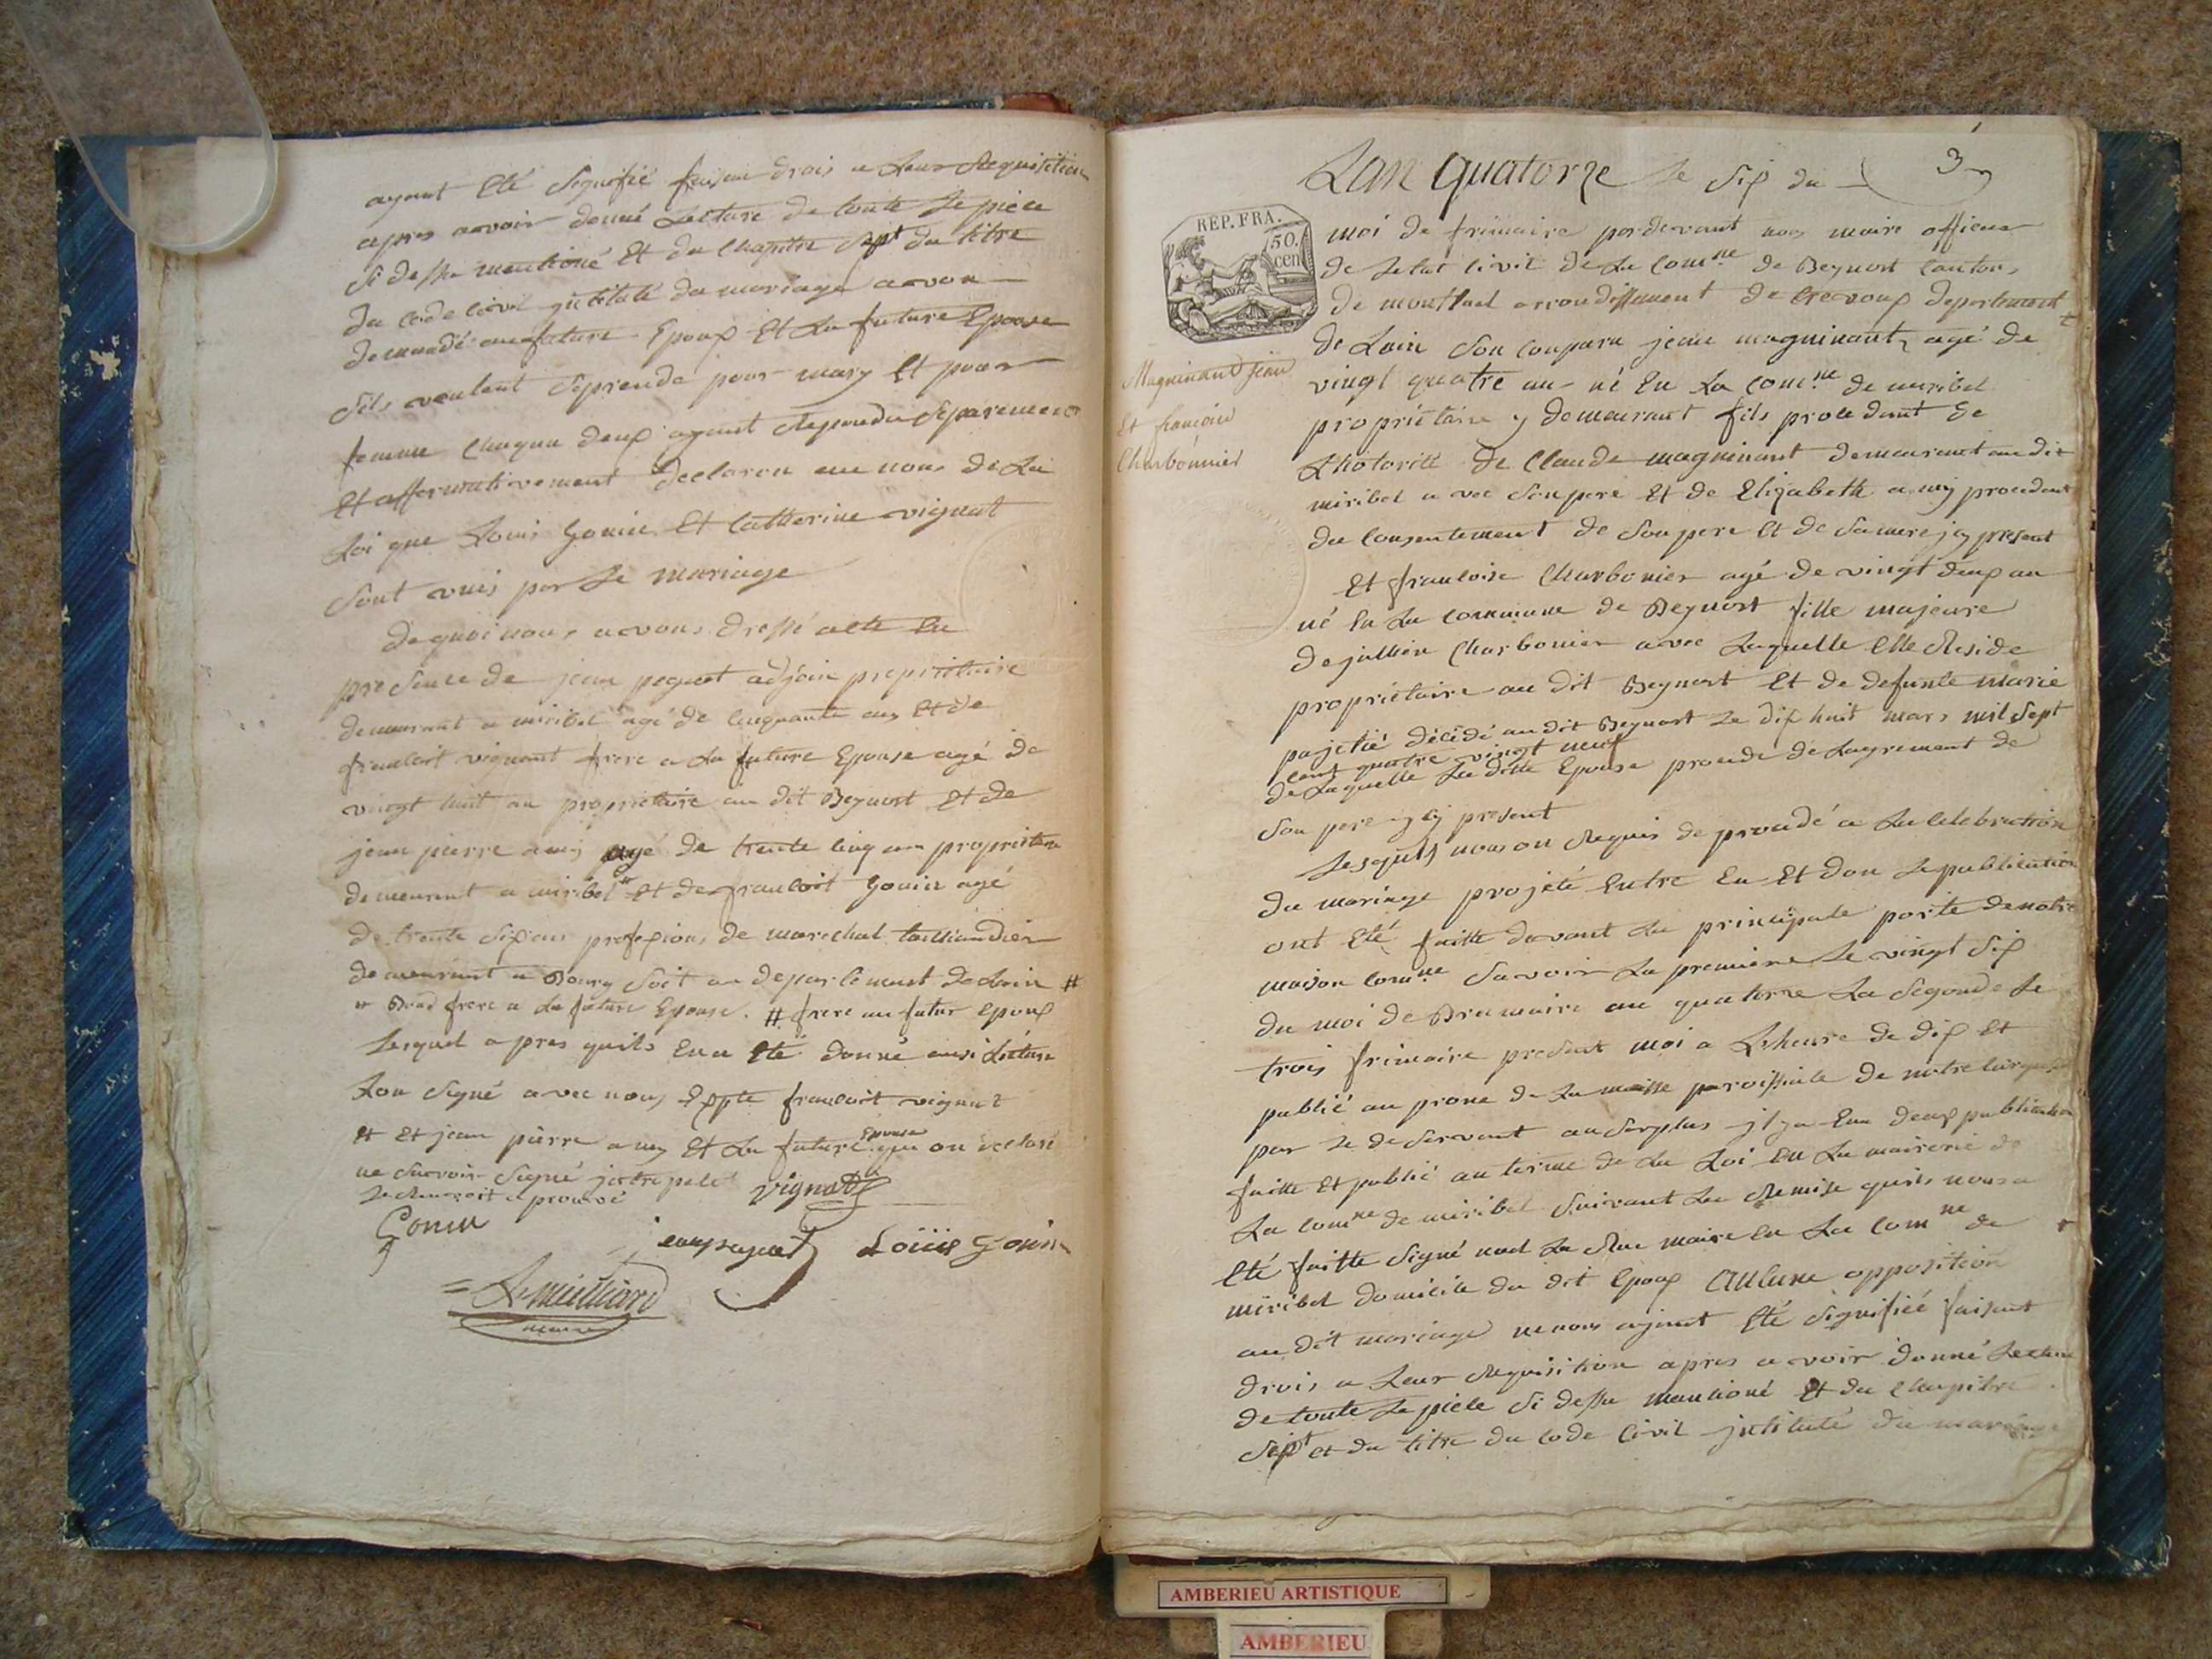 ayant Eté Signifié faisan drois a Leur Requisition
apres avoir donné Lecture de toute Le piece
Si dessu mentioné Et du Chapitre Sept du titre
du Code Civil jntitulé du mariage avon
demandé au future Epoux Et La future Epouse
Sils veulent Seprende pour mary Et pour
femme Chaqun deux ayant Repondu Séparement
Et affermativement declaron au nom de La
Loi que Louis Gonin Et Catherine vignat
Sont unis par Le mariage
de quoi nous avons dressé acte En
presence de jean poguet adjoin propriétaire
demeurant a miribel agé de Cinquante an Et de
francoit vignat frere a La future Epouse agé de
vingt huit an propriétaire au dit Beynost Et de
jean pierre amy agé de trente Cinq an propriétere
demeurant a miribel # Et de francoit Gonin agé
de trente Six an profexion de marechal taillandier
demeurant a Bourg Soit au departement de Lain #
# Beau frere a La future Epouse. # frere au futur Epoux
Lesquel apres quils En a Eté donné ausi Lecture
Lon Signé avec nous Expte francoit vignat
Et Et jean pierre amy Et La future Epouse que on declaré
ne Savoir Signé jnterpelé vignat
Le Renvoit aprouvé
Gonin
jeanpoguet Louis Gonin
= Lmilliard
maire
3
Lan quatorze Le Six du
REP. FRA.
50.
cen
moi de frimaire pardevant nous maire officier
de Letat Civil de La Comne de Beynost Canton
de montluel arrondissement de trevoux departement
de Lain Son Comparu jean magninant agé de
Magninand jean
Et francoise
Charbonnier
vingt quatre an né En La Comne de miribel
propriétaire y demeurant fils procedant de
Lhotorité de Claude magninant demeurant au dit
miribel avec Son pere Et de Elizabeth amy procedant
du Consentement de Son pere Et de Sa mere jcy present
Et francoise Charbonier agé de vingt deux an
né En La Commune de Beynost fille majeure
de jullien Charbonier avec Laquelle Elle Reside
propriétaire au dit Beynost Et de defunte marie
décédé au dit Beynost Le dix huit mars mil Sept
Cent quatre vingt neuf
de Laquelle La ditte Epouse procede de Lagrement de
Son pere jcy present
Lesquels nous on Requis de procédé a La Celebration
du mariage projeté Entre Eu Et don Le publication
ont Eté faitte devant La principale porte de notre
maison Comne Savoir La premiere Le vingt Six
du moi de Brumaire an quatorze La Segonde Le
trois frimaire present moi a Lheure de dix Et
publié au prone de La messe paroissiale de notre
par Le deServant au Surplus jl ya Eue deux publication
faitte Et publié au terme de La Loi En La mairerie de
La Comne de miribel Suivant La Remise quils nous a
Eté faitte Signé maire En La Comne de
miribel domicile du dit Epoux aucune opposition
au dit mariage ne nous ayant Eté Signifiée faisant
drois a Leur Requisition apres avoir donné Lecture
de toute Le piece Si dessu mantioné Et du Chapitre
Sept et du titre du Code Civil jntitulé du mariage
AMBERIEU ARTISTIQUE
AMBERIEU